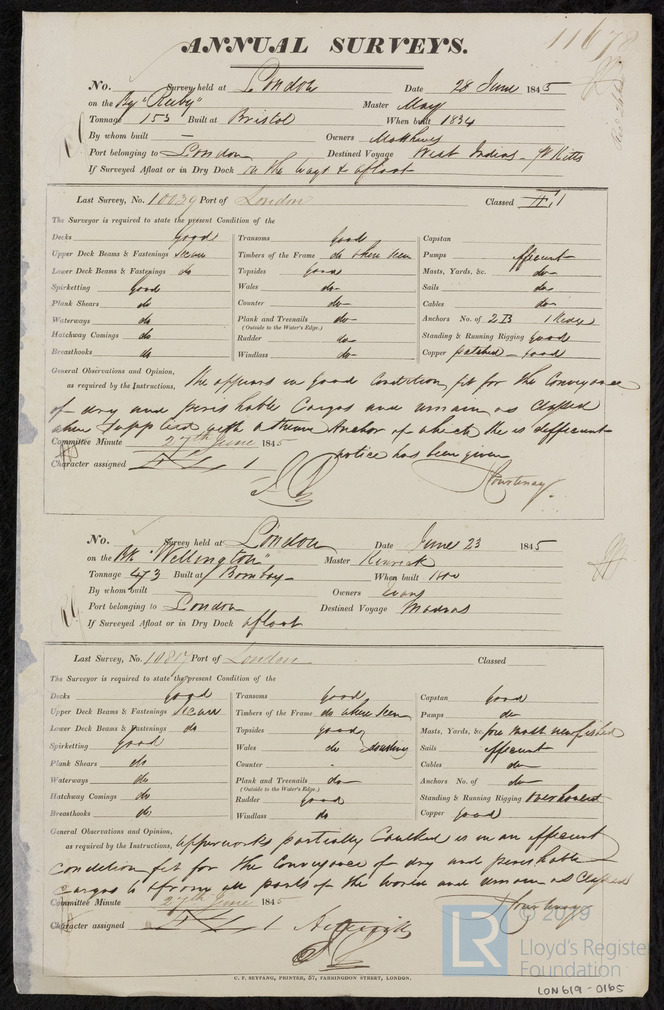 11678
ANNUAL SURVEYS.
No. Survey held at London Date 28 June 1845
on the Bg "Ruby" Master May
Tonnage 153 Built at Bristol When built 1834
By whom built — Owners Matthews
Port belonging to London Destined Voyage West Indies - St Kitts
If Surveyed Afloat or in Dry Dock on the ways & afloat
Last Survey, No. 10039 Port of London Classed 1
The Surveyor is required to state the present Condition of the
Decks good Transoms good Capstan
Upper Deck Beams & Fastenings secure Timbers of the Frame do where seen Pumps efficient
Lower Deck Beams & Fastenings do Topsides good Masts, Yards, &c. do
Spirketting good Wales do Sails do
Plank Shears do Counter do Cables do
Waterways do Plank and Treenails do Anchors No. of 2 B 1 Kedge
(Outside to the Water's Edge.)
Hatchway Comings do Rudder do Standing & Running Rigging good
Breasthooks do Windlass do Copper patched - good
General Observations and Opinion,
as required by the Instructions, She appears in good condition fit for the conveyance
of dry and perishable Cargos and remain as Classed
when supplied with a Stream Anchor of which she is defficient
Committee Minute 27th June 1845
notice has been given
Character assigned 1
Courtenay
No. Survey held at London Date June 23 1845
on the Bk "Wellington" Master Kenrick
Tonnage 473 Built at Bombay When built
By whom built Owners Evans
Port belonging to London Destined Voyage Madras
If Surveyed Afloat or in Dry Dock afloat
Last Survey, No. 10817 Port of London Classed
The Surveyor is required to state the present Condition of the
Decks good Transoms good Capstan good
Upper Deck Beams & Fastenings secure Timbers of the Frame do where seen Pumps do
Lower Deck Beams & Fastenings do Topsides good Masts, Yards, &c. fore mast new fished
Spirketting good Wales do Sails efficient
Plank Shears do Counter Cables do
Waterways do Plank and Treenails do Anchors No. of do
(Outside to the Water's Edge.)
Hatchway Comings do Rudder good Standing & Running Rigging overhauled
Breasthooks do Windlass do Copper good
General Observations and Opinion,
as required by the Instructions, upperworks partially Caulked is in an efficient
condition fit for the Conveyance of dry and perishable
Cargos to & from all parts of the world and remain as Classed
Committee Minute 27th June 1845 Courtenay
Character assigned 1
C. F. SEYFANG, PRINTER, 57, FARRINGDON STREET, LONDON.
LR © 2019
Lloyd's Register
Foundation
LON619-0165